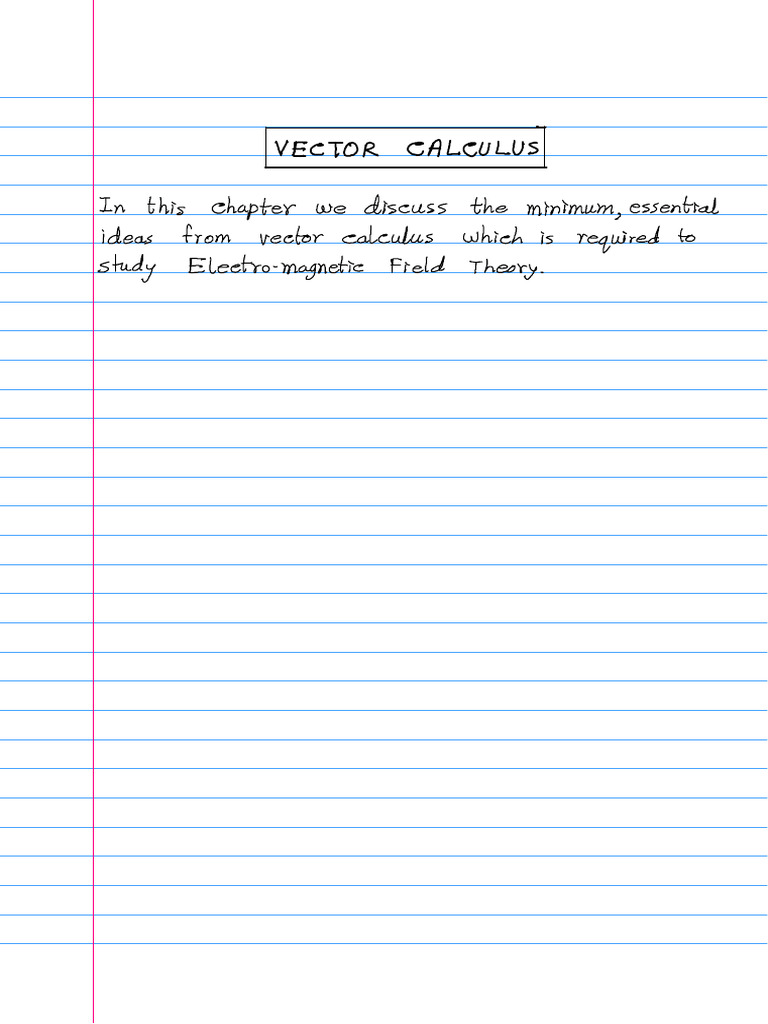 VECTOR CALCULUS
In this chapter we discuss the minimum, essential
ideas from vector calculus which is required to
study Electro-magnetic Field Theory.